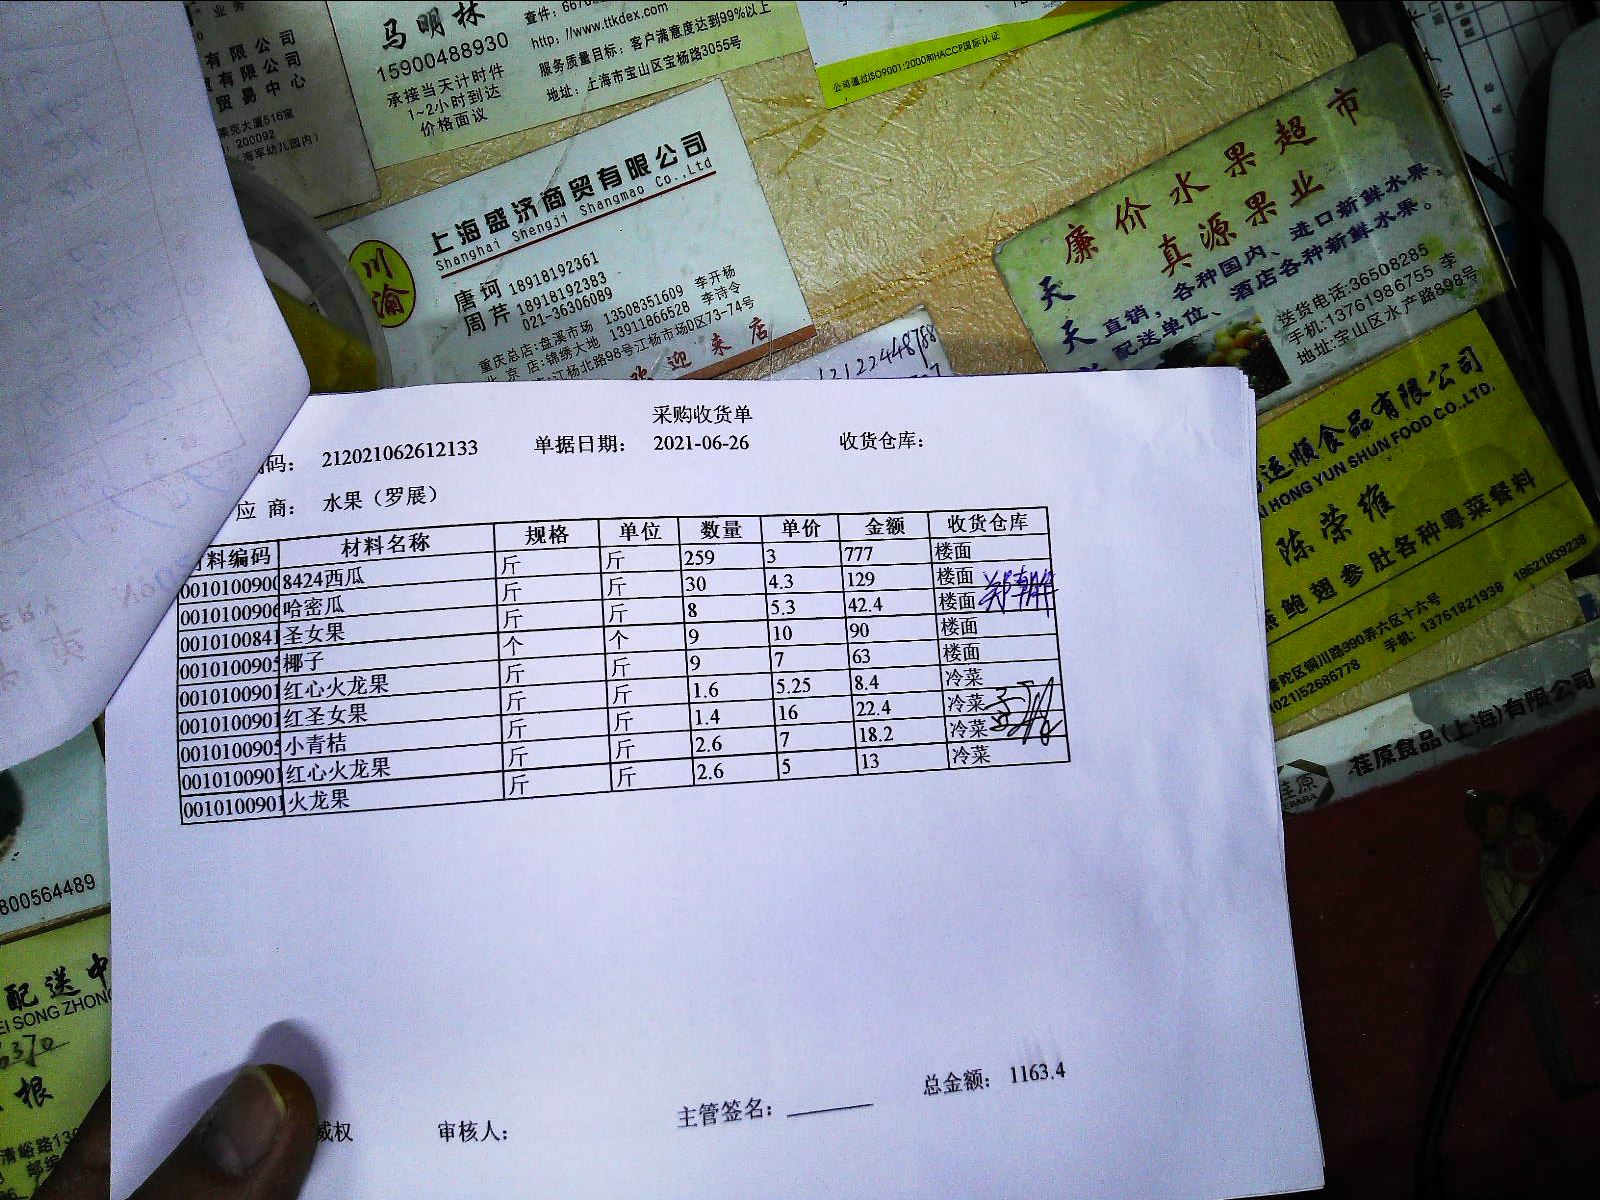 有限公司
贸有限公司
贸易中心
莱克大厦516室
200092
(海军幼儿园内)
马明林
15900488930
承接当天计时件
1~2小时到达
价格面议
http://www.ttkdex.com
服务质量目标：客户满意度达到99%以上
地址：上海市宝山区宝杨路3055号
公司通过ISO9001:2000和HACCP国际认证
川渝
上海盛济商贸有限公司
Shanghai Shengji Shangmao Co.,Ltd
唐珂 18918192361
周芹 18918192383
021-36306089
重庆总店:盘溪市场 13508351609 李开杨
北京店:锦绣大地 13911866528 李诗令
江杨北路98号江杨市场D区73-74号
欢迎来店
廉价水果超市
真源果业
天天直销，各种国内、进口新鲜水果，
配送单位、酒店各种新鲜水果。
送货电话:36508285
手机:13761986755 李
地址:宝山区水产路898号
运顺食品有限公司
HONG YUN SHUN FOOD CO.,LTD.
陈荣雄
燕鲍翅参肚各种粤菜餐料
普陀区铜川路990弄六区十六号
(021)52686778 手机: 13761821938 18621839238
荏原食品(上海)有限公司
采购收货单
码： 212021062612133 单据日期： 2021-06-26 收货仓库：
应商： 水果（罗展）
材料编码 材料名称 规格 单位 数量 单价 金额 收货仓库
0010100900 8424西瓜 斤 斤 259 3 777 楼面
0010100906 哈密瓜 斤 斤 30 4.3 129 楼面
0010100841 圣女果 斤 斤 8 5.3 42.4 楼面
0010100905 椰子 个 个 9 10 90 楼面
0010100901 红心火龙果 斤 斤 9 7 63 楼面
0010100901 红圣女果 斤 斤 1.6 5.25 8.4 冷菜
0010100905 小青桔 斤 斤 1.4 16 22.4 冷菜
0010100901 红心火龙果 斤 斤 2.6 7 18.2 冷菜
0010100901 火龙果 斤 斤 2.6 5 13 冷菜
总金额： 1163.4
威权 审核人： 主管签名：
800564489
配送中
EI SONG ZHONG
根
清峪路